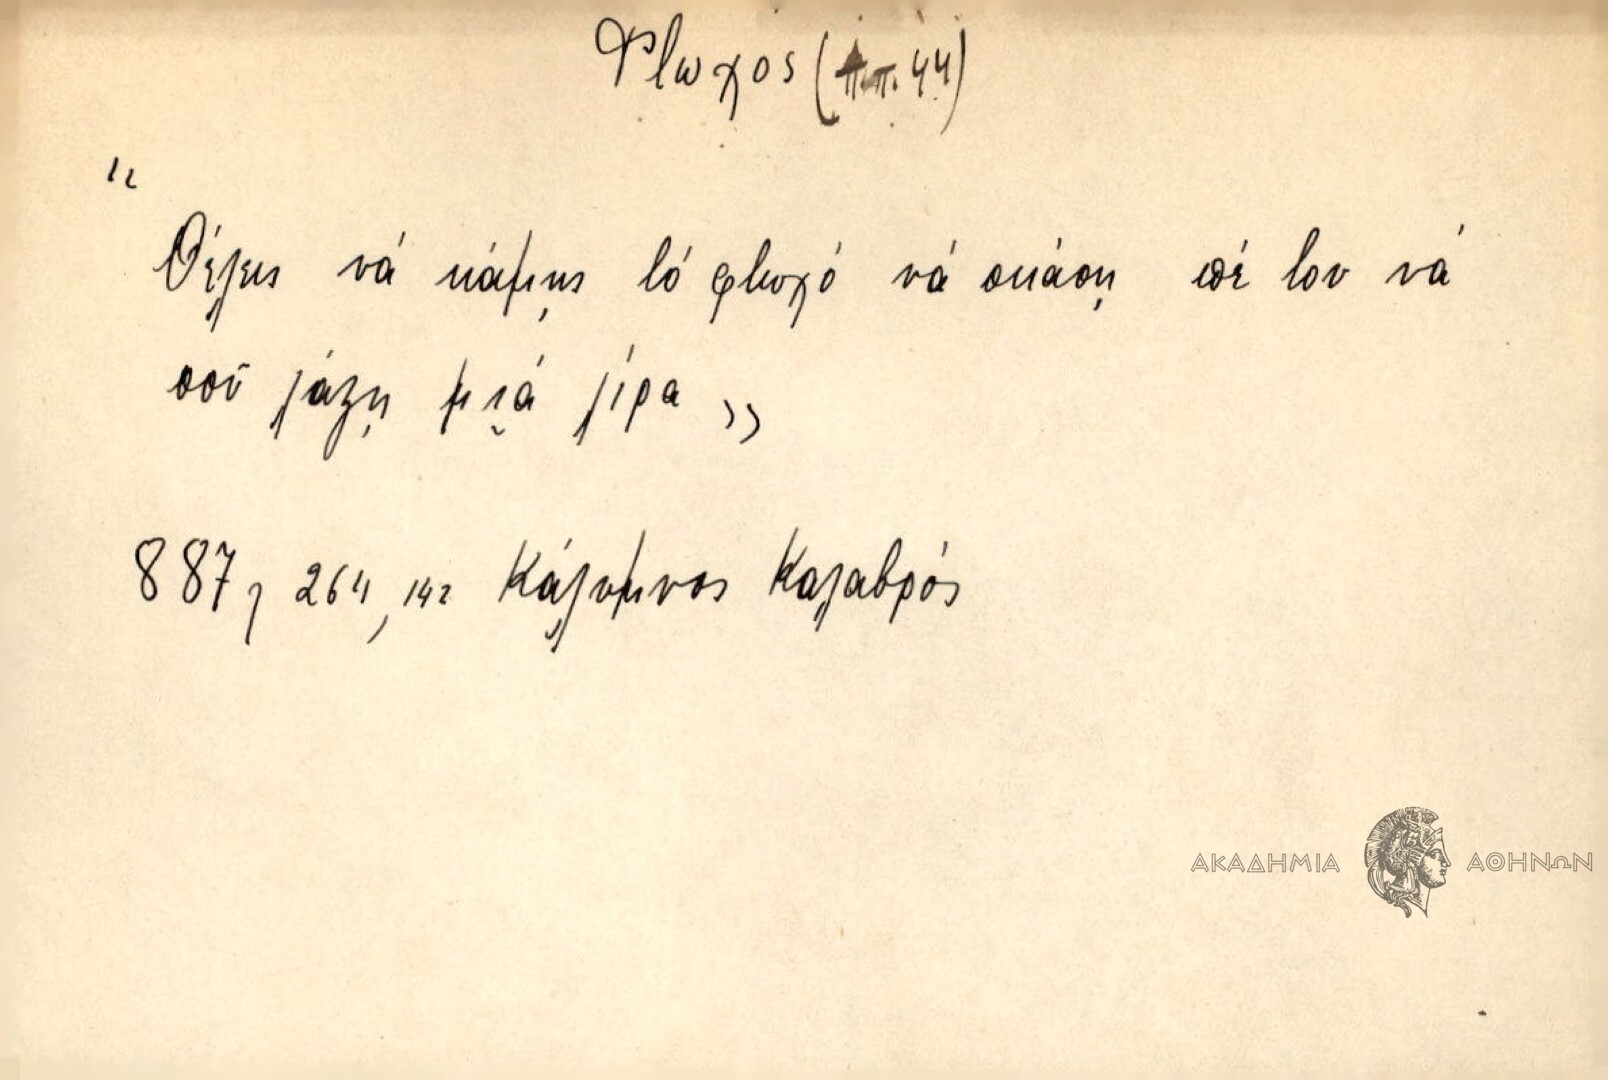 Φτωχός (π.π. 44)
"Θέλεις νά κάμῃς τό φτωχό νά σκάσῃ πέ του νά
σοῦ λάζῃ μιά λίρα"
887, 264, 142 Κάλυμνος Καλαβρός
ΑΚΑΔΗΜΙΑ ΑΘΗΝΩΝ